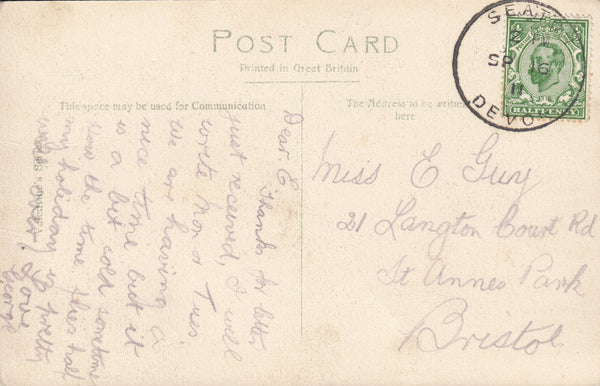 POST CARD
Printed in Great Britain
This space may be used for Communication
The Address to be written
here
SEAT
SP 16
11
DEVO
HALFPENNY
Dear E Thanks for letter
just received, I will
write Mon or Tues
We are having a
nice time but it
is a bit cold sometimes
this time
my holiday is pretty
well over.
Love
George
Miss E Guy
21 Langton Court Rd
St Annes Park
Bristol